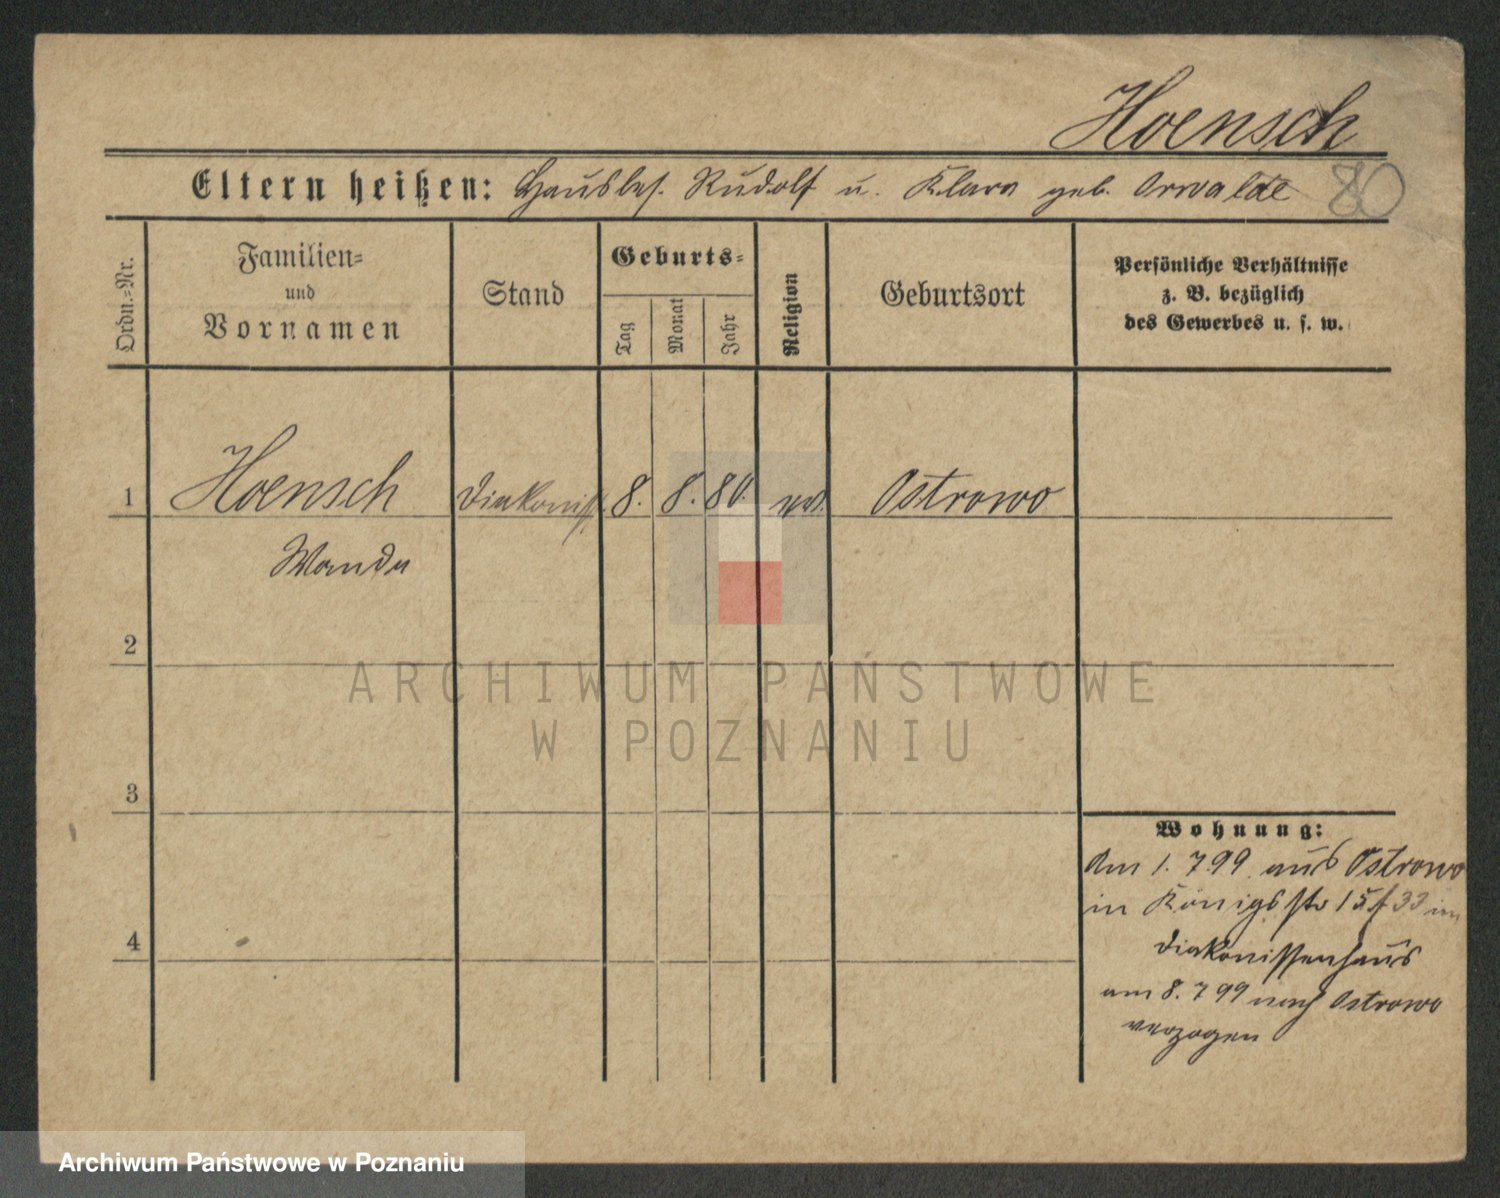 Hoensch
Eltern heißen: Hausbes. Rudolf u. Klara geb. Orwalde
80
Ordn.=Nr.
Familien=
und
Vornamen
Stand
Geburts=
Tag
Monat
Jahr
Religion
Geburtsort
Persönliche Verhältnisse
z. B. bezüglich
des Gewerbes u. s. w.
1 Hoensch Diakoniss. 8. 8. 80. Ostrowo
Wanda
2
ARCHIWUM PAŃSTWOWE
W POZNANIU
3
Wohnung:
Am 1. 7 99 aus Ostrowo
in Königsstr 15 33 im
Diakonissenhaus
am 8. 7 99 nach Ostrowo
verzogen
4
Archiwum Państwowe w Poznaniu